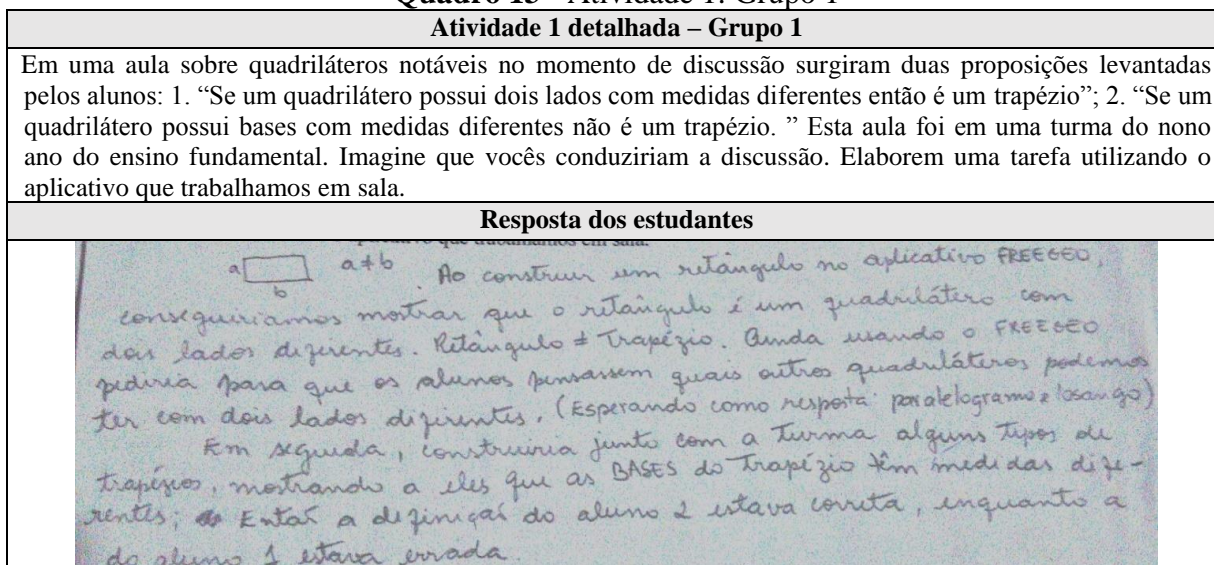 Quadro 15 - Atividade 1: Grupo 1
Atividade 1 detalhada – Grupo 1
Em uma aula sobre quadriláteros notáveis no momento de discussão surgiram duas proposições levantadas
pelos alunos: 1. “Se um quadrilátero possui dois lados com medidas diferentes então é um trapézio”; 2. “Se um
quadrilátero possui bases com medidas diferentes não é um trapézio. ” Esta aula foi em uma turma do nono
ano do ensino fundamental. Imagine que vocês conduziriam a discussão. Elaborem uma tarefa utilizando o
aplicativo que trabalhamos em sala.
Resposta dos estudantes
que trabalhamos em sala.
a b a ≠ b Ao construir um retângulo no aplicativo FREEGEO,
conseguiriamos mostrar que o retângulo é um quadrilátero com
dois lados diferentes. Retângulo ≠ Trapézio. Ainda usando o FREEGEO
pediria para que os alunos pensassem quais outros quadriláteros podemos
ter com dois lados diferentes. (Esperando como resposta paralelogramo e losango)
Em seguida, construiria junto com a turma alguns tipos de
trapézios, mostrando a eles que as BASES do trapézio têm medidas dife-
rentes; Então a definição do aluno 2 estava correta, enquanto a
do aluno 1 estava errada.